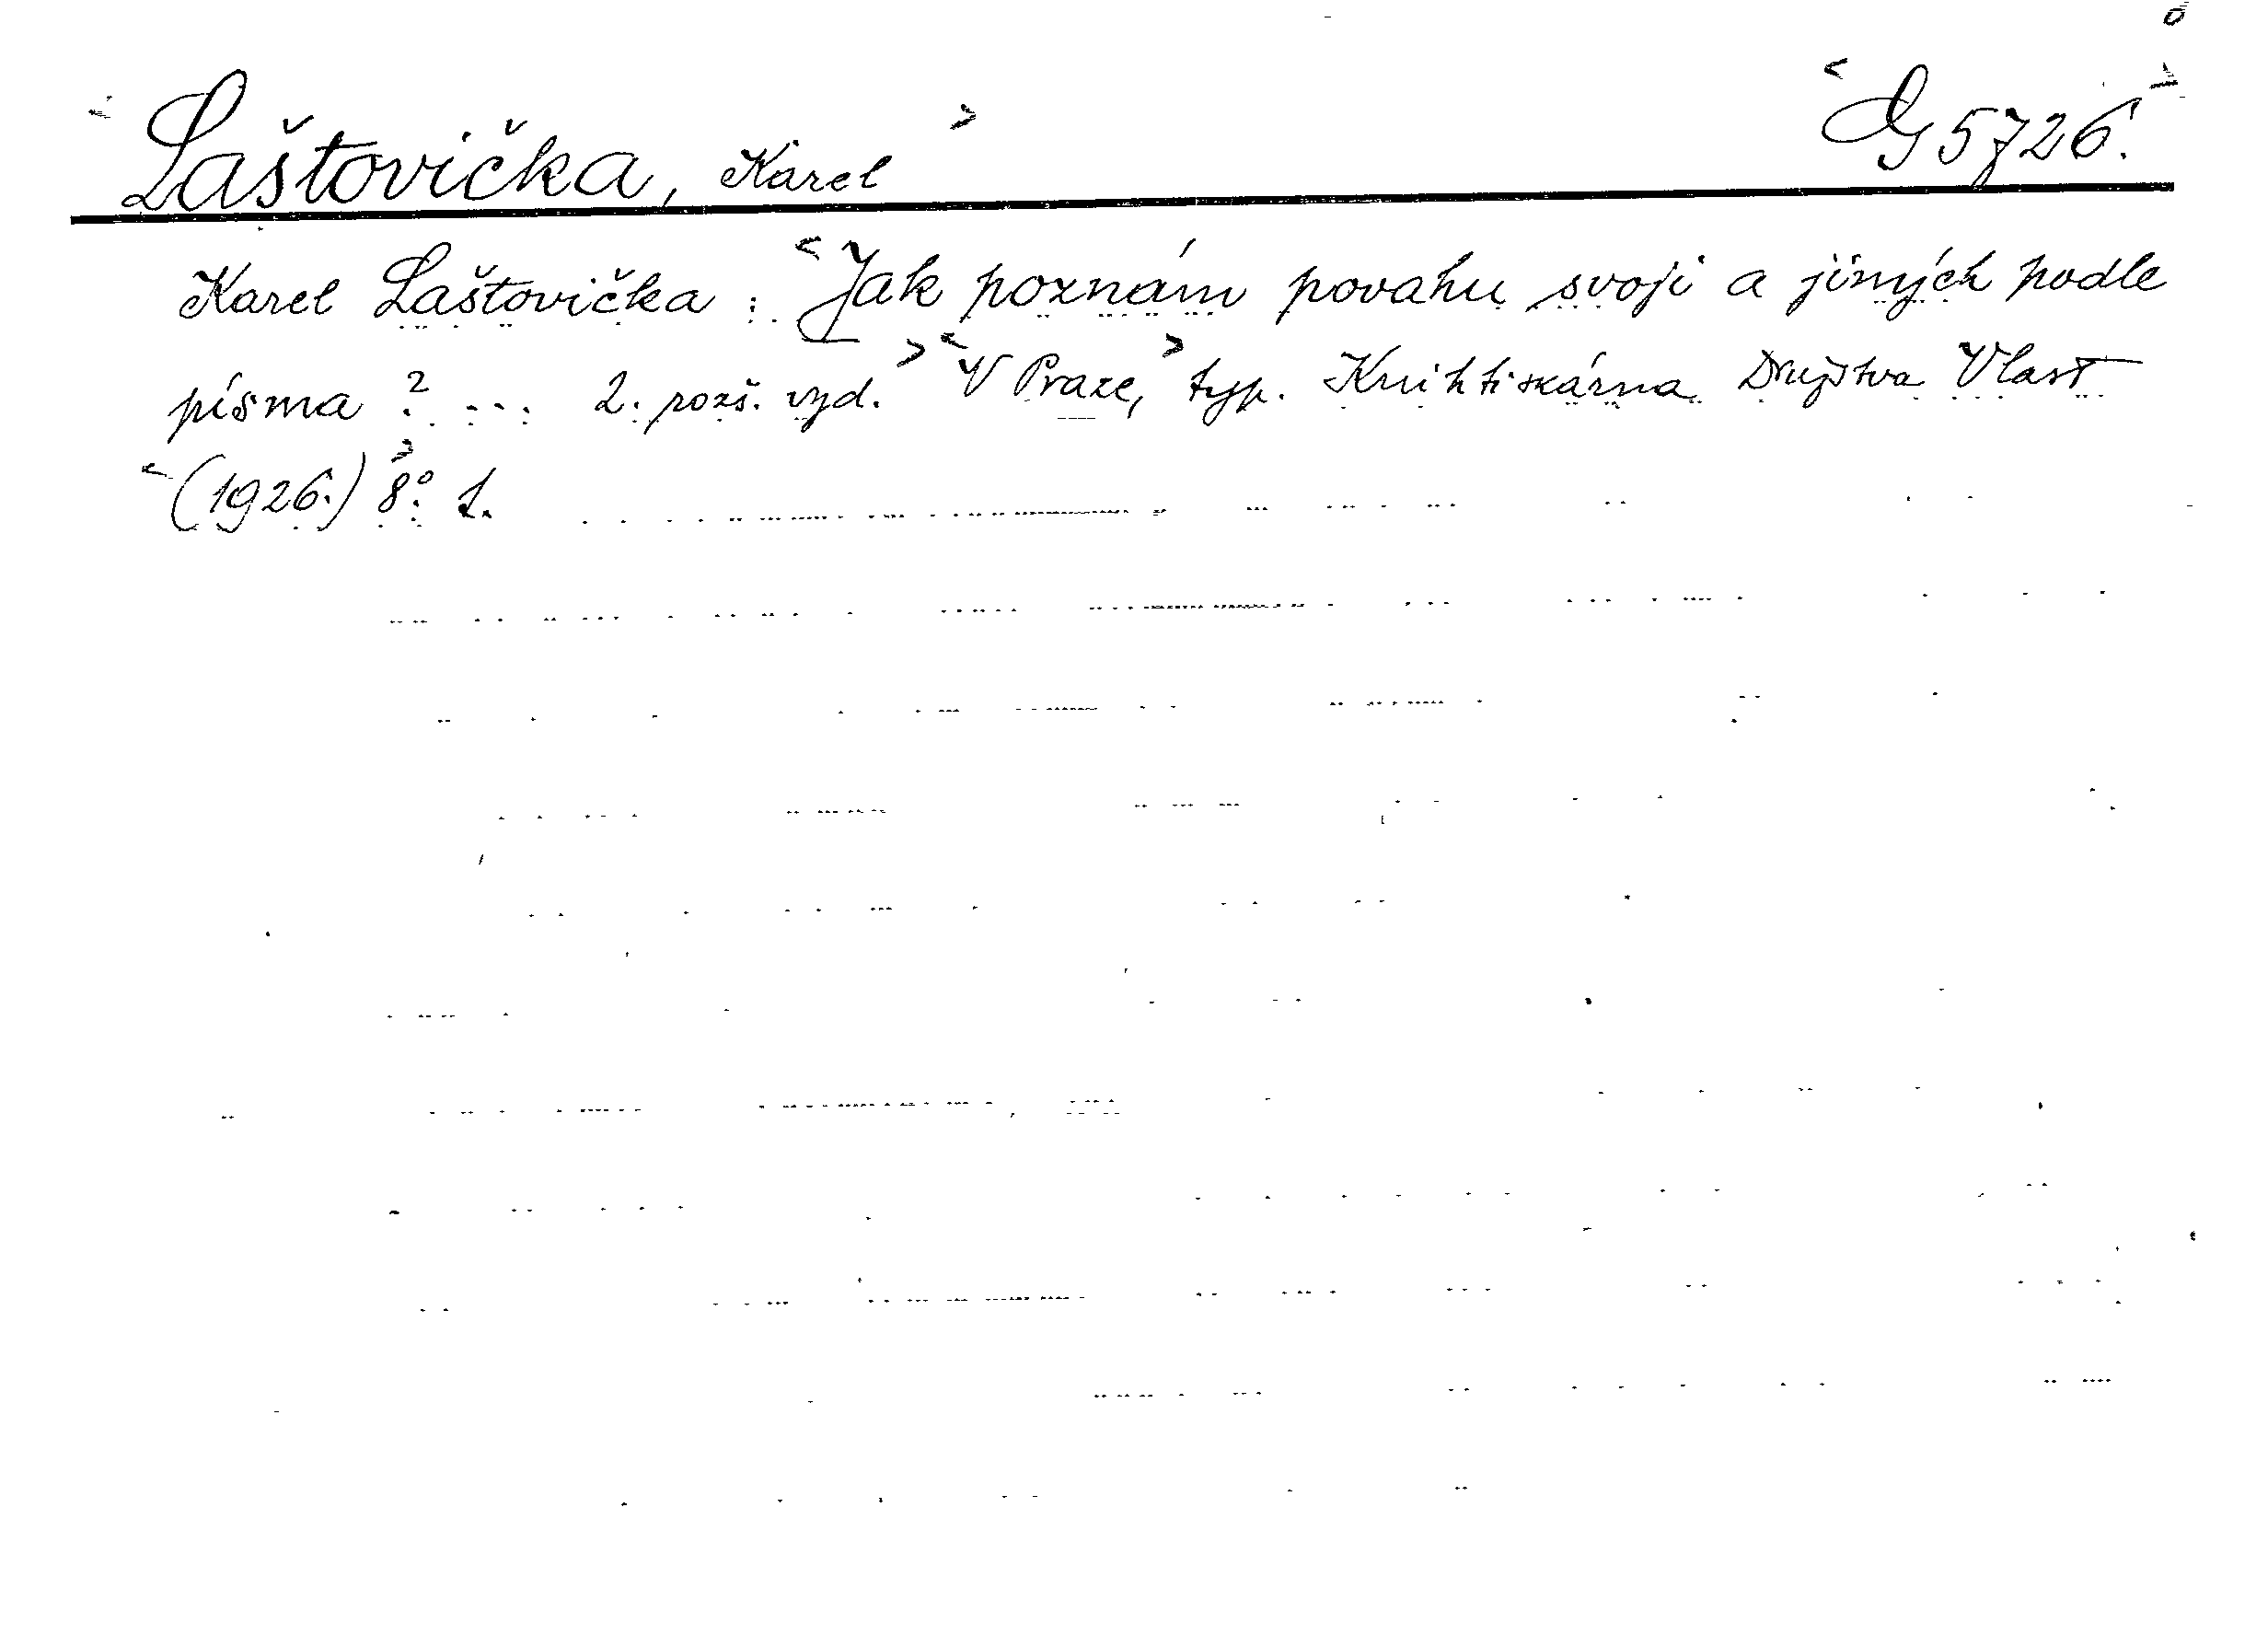 <Laštovička, Karel> <G 5726.>
Karel Laštovička : <Jak poznám povahu svoji a jiných podle
písma ? ... 2. rozš. vyd.> <V Praze,> typ. Knihtiskárna Družstva Vlasť
<(1926.)> 8°. 1.